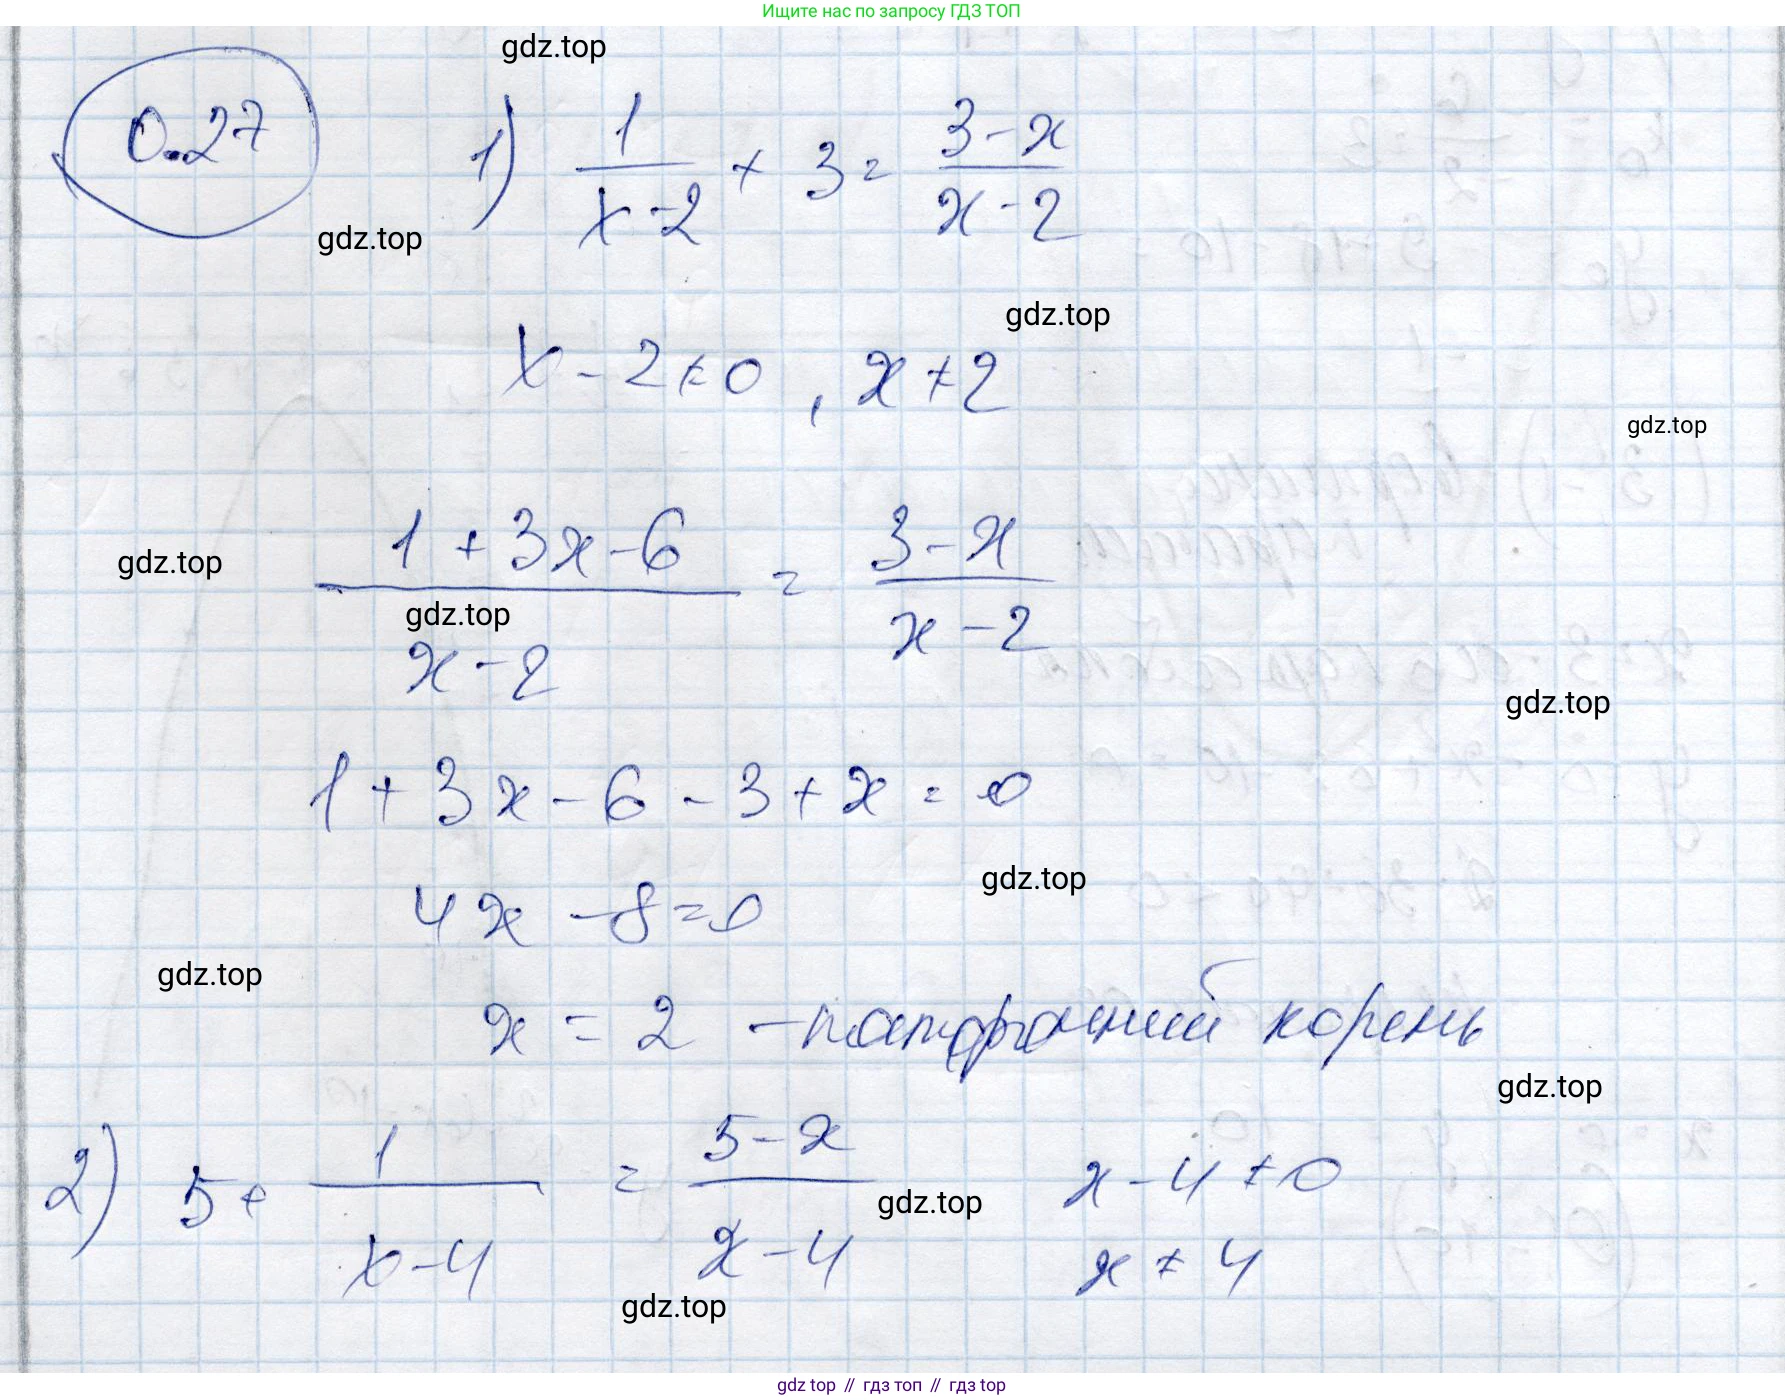 Ищите нас по запросу ГДЗ ТОП
gdz.top
0.27
1) 1/(x-2) + 3 = (3-x)/(x-2)
gdz.top
gdz.top
x-2≠0, x≠2
gdz.top
(1+3x-6)/(x-2) = (3-x)/(x-2)
gdz.top
gdz.top
gdz.top
1+3x-6-3+x=0
gdz.top
4x-8=0
gdz.top
x=2 - посторонний корень
gdz.top
2) 5+ 1/(x-4) = (5-x)/(x-4) x-4≠0
gdz.top
x≠4
gdz.top
gdz top // гдз топ // гдз top